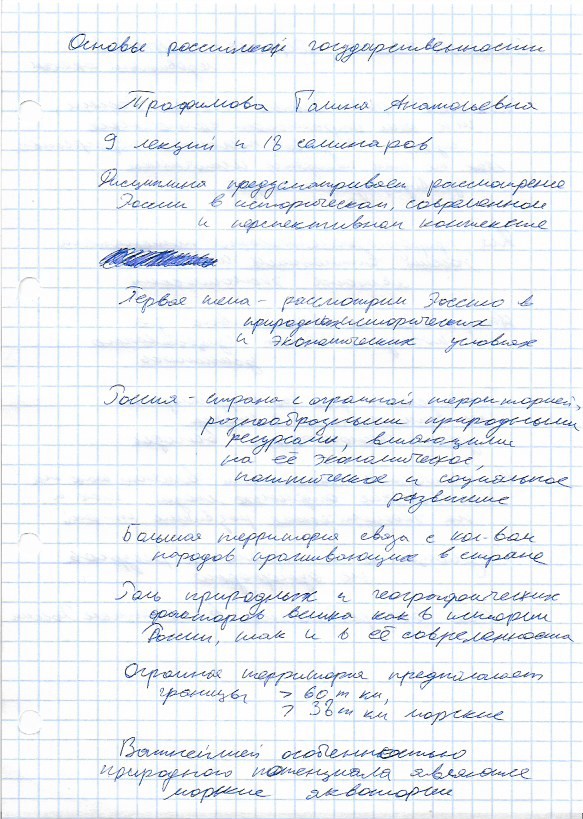 Основы российской государственности
Трафимова Галина Анатольевна
9 лекций и 18 семинаров
Дисциплина предусматривает рассмотрение
России в историческом, современном
и перспективном контексте
Первая тема - рассмотрим Россию в
природноисторических
и экономических условиях
Россия - страна с огромной территорией,
разнообразными природными
ресурсами, влияющими
на её экономическое,
политическое и социальное
развитие
Большая территория связа с кол-вом
народов проживающих в стране
Роль природных и географических
факторов велика как в истории
России, так и в её современности
Огромная территория предполагает
границы > 60 т км,
> 38 т км морские
Важнейшей особенностью
природного потенциала являются
морские акватории